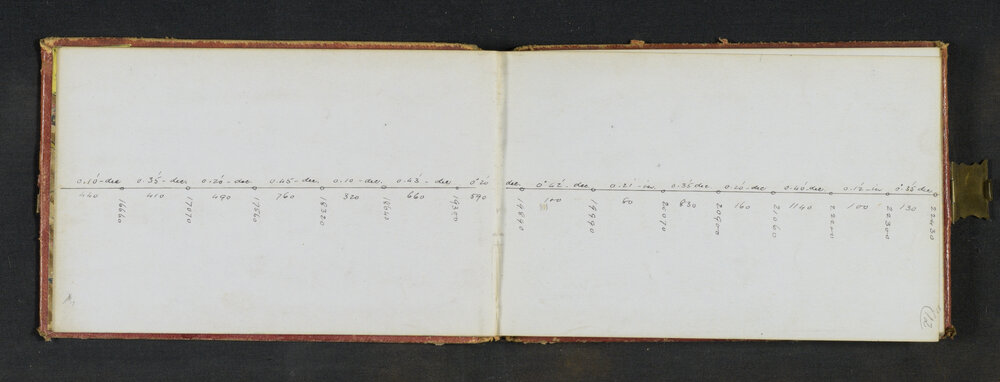 0.10'-dec 0.35'-dec. 0.20'-dec 0.45-dec. 0.10-dec. 0.43'-dec 0°20' dec. -dec. 0.21'-in. 0.35' dec 0.20-dec. 0.40 dec. 0.12-in 0.35' dec.
440 410 490 760 320 660 590 100 80 830 160 1140 100 130
16660 17070 17560 18320 18640 19300 19890 19990 20070 20900 21060 22200 22300 22430